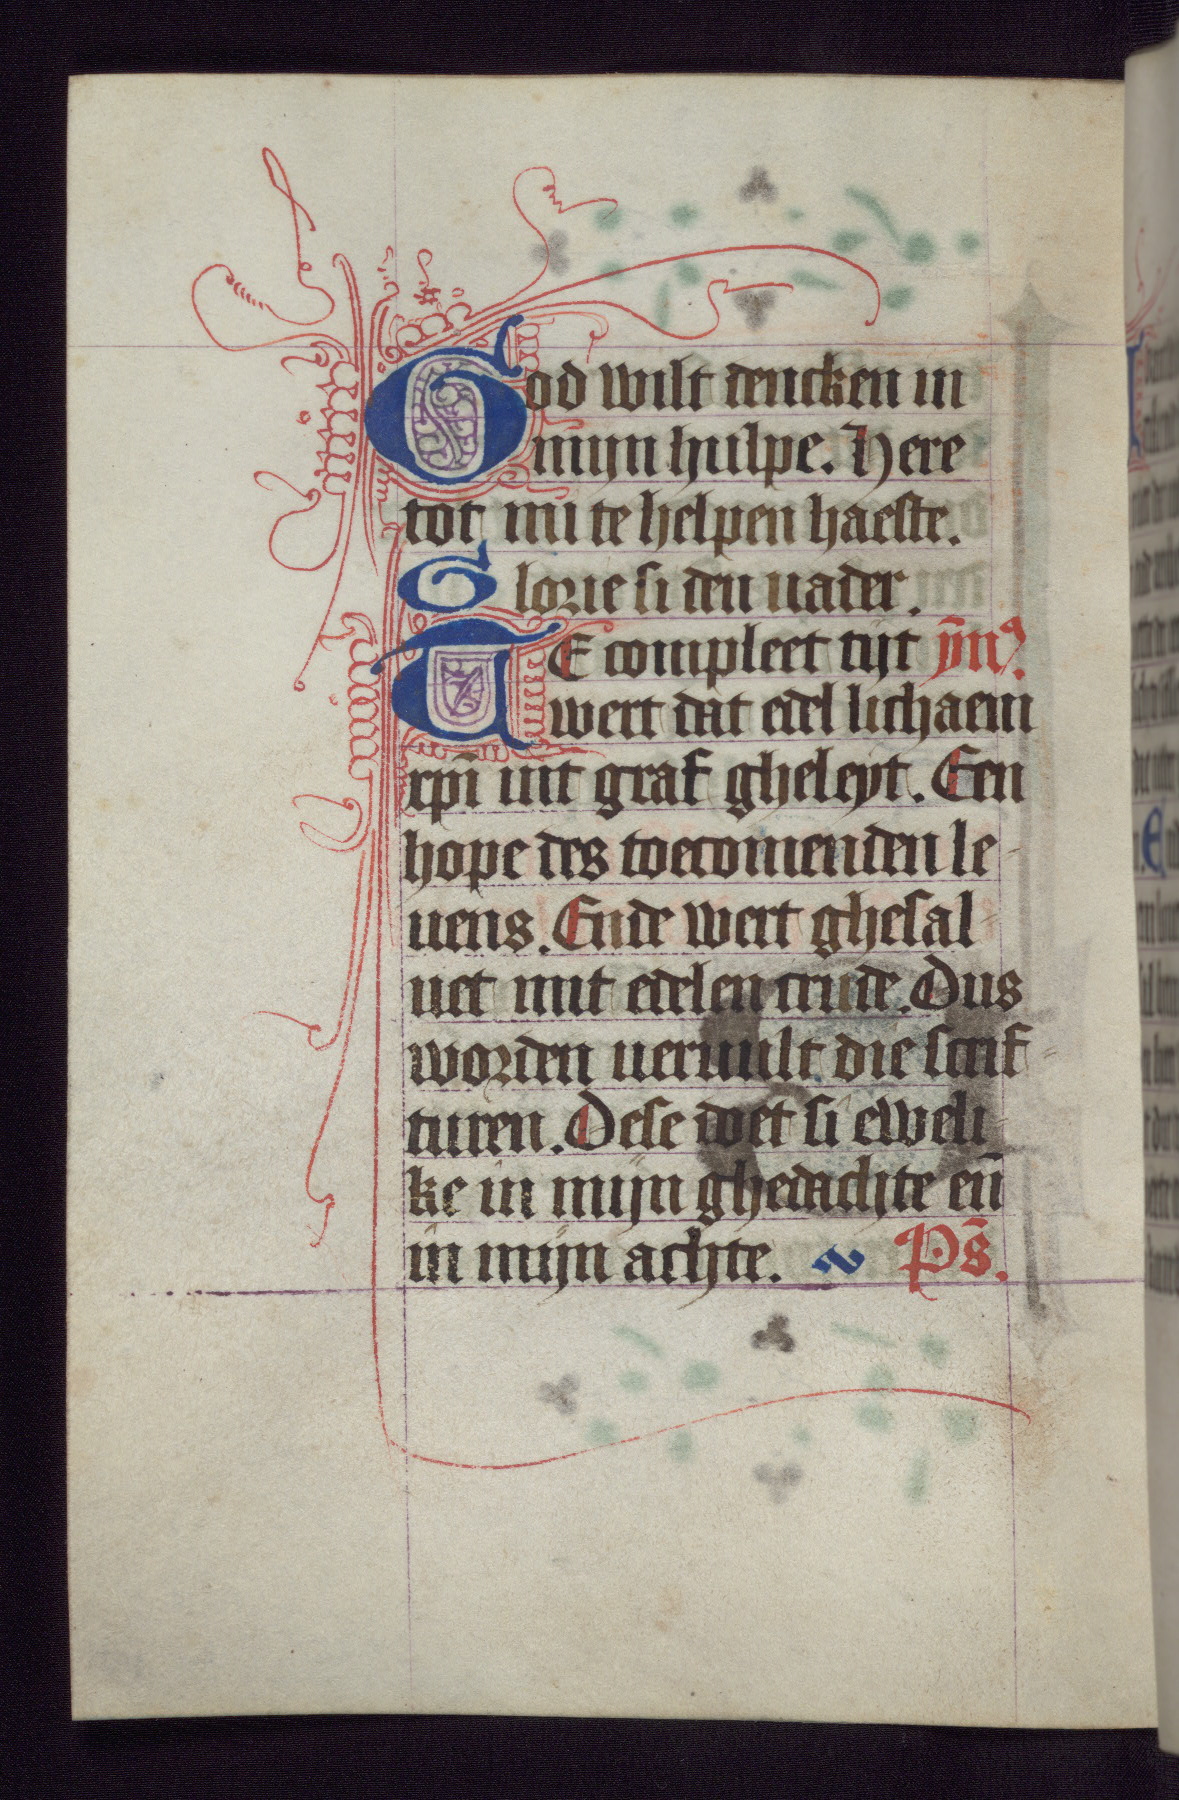 God wilt dencken in
mijn hulpe. Here
tot mi te helpen haeste.
Glorie si den uader.
TE compleet tijt ȳmꝰ.
wert dat edel lichaem
xp̄i int graf gheleyt. Een
hope des toecomenden le
uens. Ende wert ghesal
uet mit edelen crude. Dus
worden ueruult die scrif
turen. Dese doet si eweli
ke in mijn ghedachte en̄
in mijn achte. Ps̄.